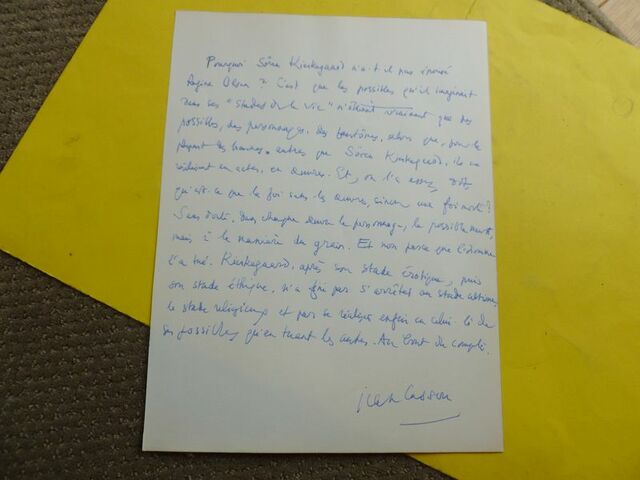 Pourquoi Sören Kierkegaard n'a-t-il pas épousé
Régine Olsen ? C'est que les possibles qu'il imaginait
dans ses "stades de la vie" n'étaient vraiment que des
possibles, des personnages, des fantômes, selon que, pour la
plupart des hommes autres que Sören Kierkegaard, ils se
réalisent en actes, en œuvres. Et, on l'a assez dit
qu'est-ce que la foi sans les œuvres, sinon une foi morte ?
Sans doute, dans chaque œuvre le personnage, le possible meurt,
mais à la manière du grain. Et non parce que l'homme
l'a tué. Kierkegaard, après son stade érotique, puis
son stade éthique, n'a fini par s'arrêter au stade ultime,
le stade religieux et par se réaliser enfin en celui-là de
ses possibles qu'en tuant les autres. Au bout du compte.
Jean Cassou